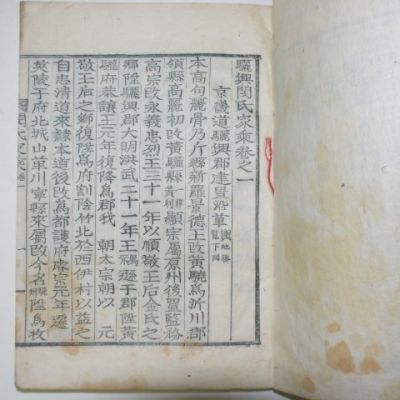 驪興閔氏家乘卷之一
京畿道驪興郡建置沿革 輿地勝覽下同
本高句麗骨乃斤縣新羅景德王改黃驍爲沂川郡
領縣高麗初改黃驪縣 顯宗屬原州後置監務
高宗改永義忠烈王三十一年以順敬王后金氏之
鄕陞驪興郡大明洪武二十一年王禑遜于郡陞黃
驪府恭讓王元年復降爲郡我 朝太宗朝以 元
敬王后之鄕復陞爲府割陰竹北於西伊村以益之
自忠淸道來隸本道後改爲都護府睿宗元年遷
英陵于府北城山革川寧縣來屬改今名 陞爲牧